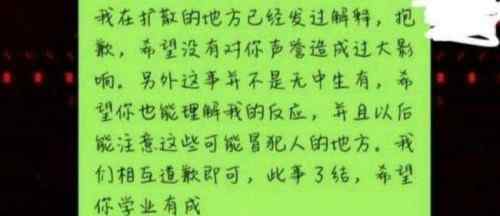 我在扩散的地方已经发过解释，抱
歉，希望没有对你声誉造成过大影
响。另外这事并不是无中生有，希
望你也能理解我的反应，并且以后
能注意这些可能冒犯人的地方。我
们相互道歉即可，此事了结，希望
你学业有成